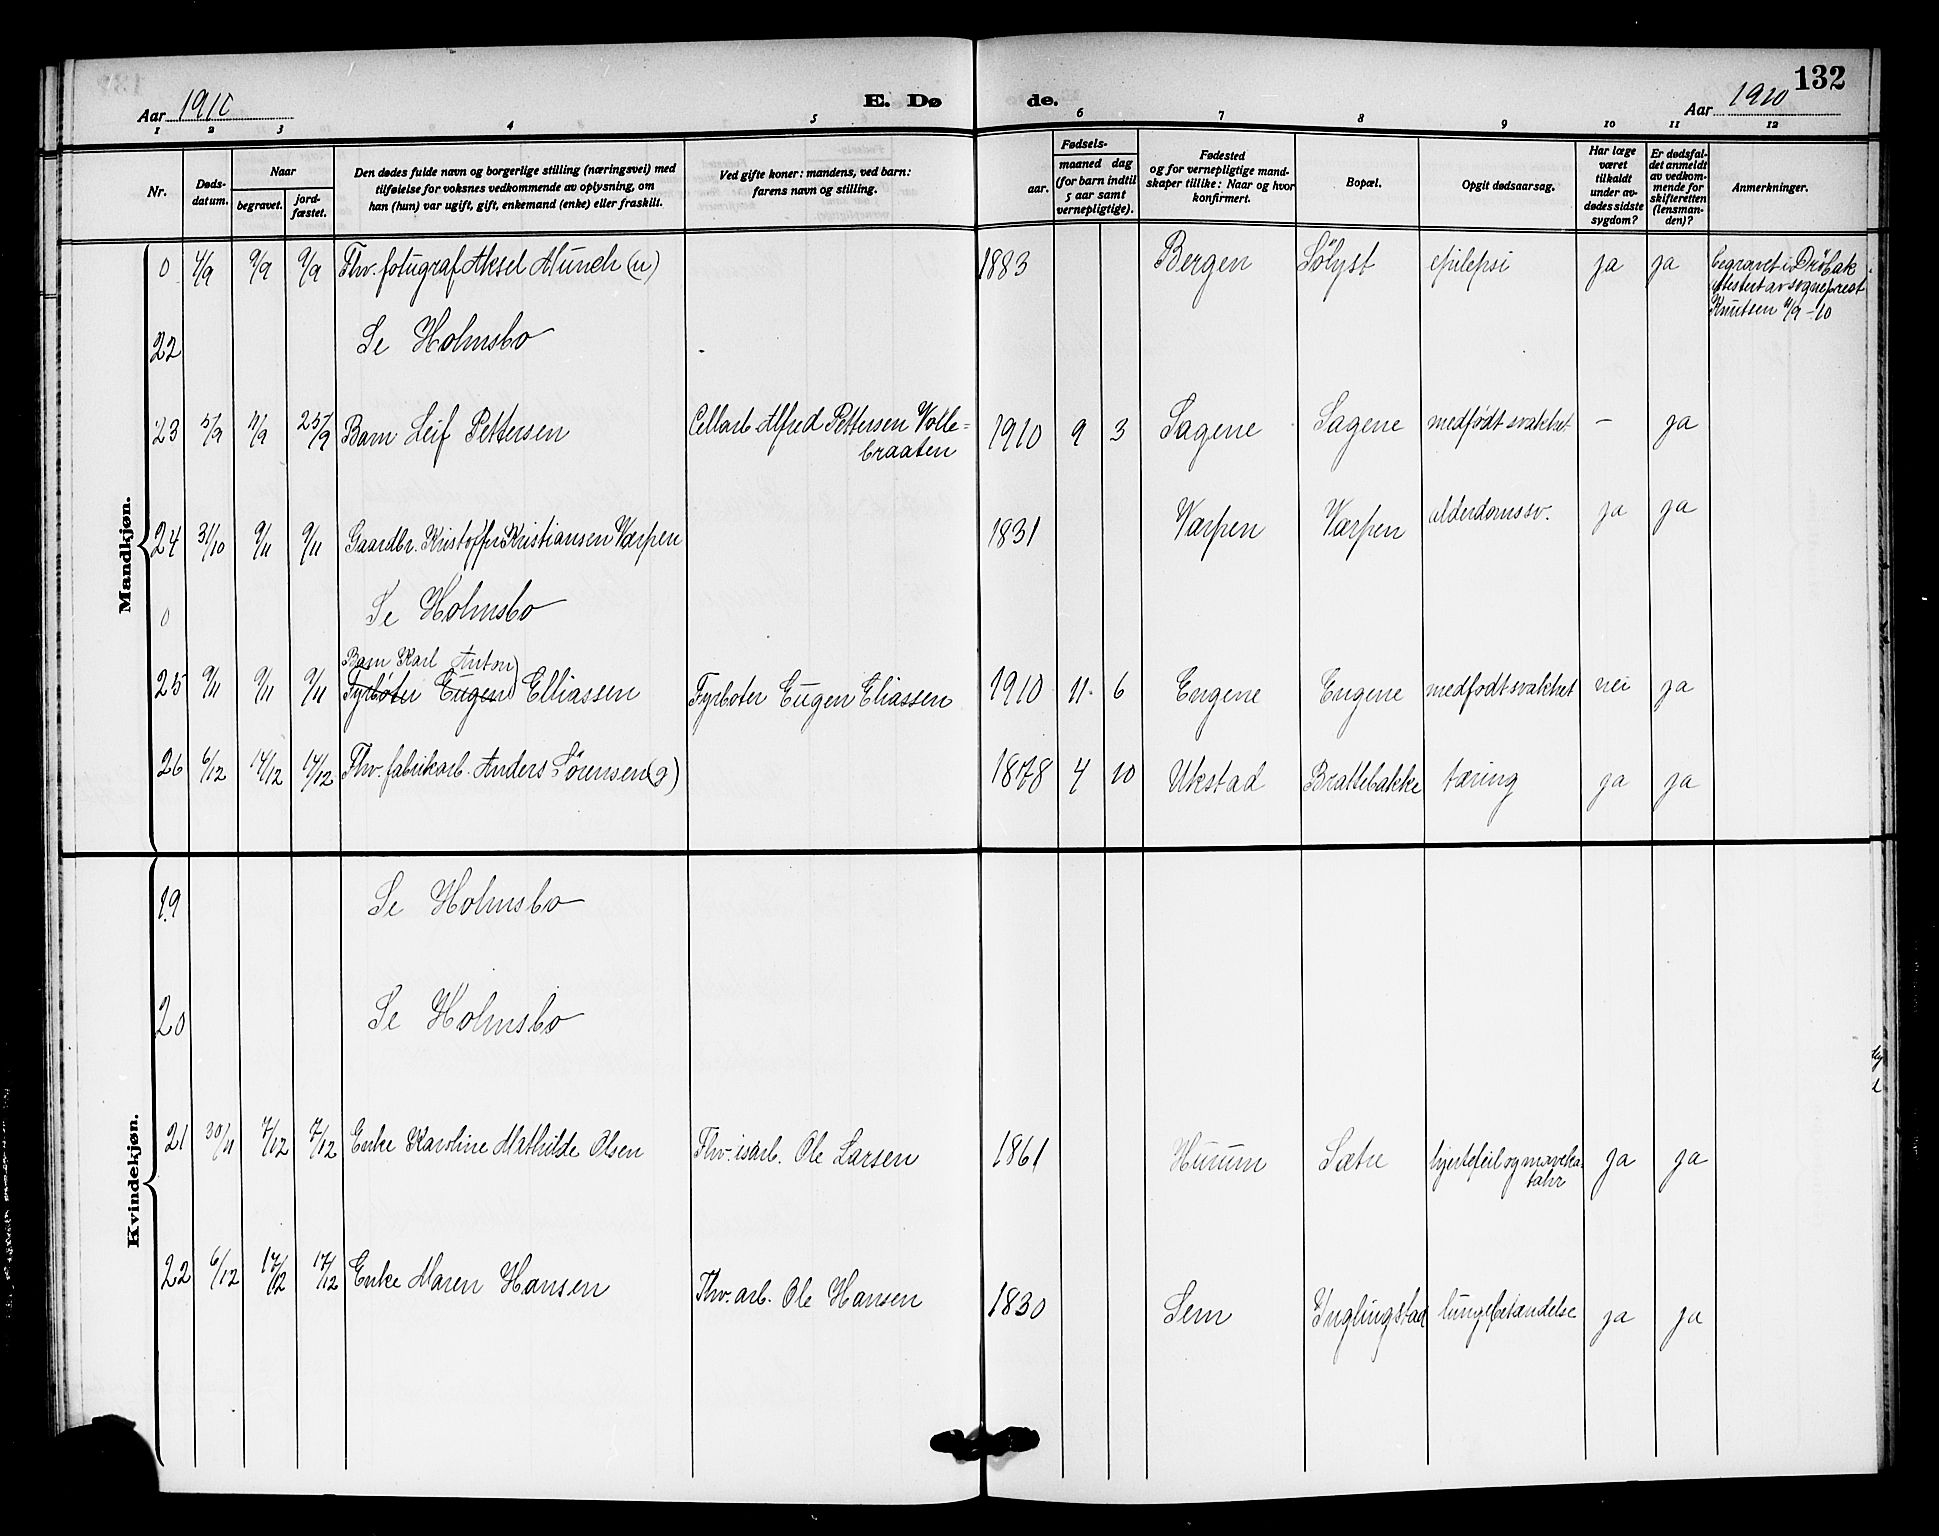 132
Aar 1910 E. Døde. Aar 1910
1 2 3 4 5 6 7 8 9 10 11 12
Nr. Døds-datum. Naar begravet. jord-fæstet. Den dødes fulde navn og borgerlige stilling (næringsvei) med tilføielse for voksnes vedkommende av oplysning, om han (hun) var ugift, gift, enkemand (enke) eller fraskilt. Ved gifte koner: mandens, ved barn: farens navn og stilling. Fødsels- aar. maaned dag (for barn indtil 5 aar samt vernepligtige). Fødested og for vernepligtige mandskaper tillike: Naar og hvor konfirmert. Bopæl. Opgit dødsaarsag. Har læge været tilkaldt under avdødes sidste sygdom? Er dødsfaldet anmeldt av vedkommende for skifteretten (lensmanden)? Anmerkninger.
Mandkjøn.
0 4/9 9/9 9/9 Fhv. fotograf Aksel Munch (u) 1883 Bergen Sölyst epilepsi ja ja begravet i Dröbak
attestert av sogneprest
Knutsen 9/9-10
22 Se Holmsbo
23 5/9 11/9 25/9 Barn Leif Pettersen Cellarb Alfred Pettersen Volle=
braaten 1910 9 3 Sagene Sagene medfödt svakhet – ja
24 31/10 9/11 9/11 Gaardbr. Kristoffer Kristiansen Værpen 1831 Værpen Værpen alderdomssv. ja ja
0 Se Holmsbo
Barn Karl Anton
25 9/11 9/11 9/11 Fyrböter Eugen Elliassen Fyrböter Eugen Eliassen 1910 11 6 Engene Engene medfodt svakhet nei ja
26 6/12 14/12 14/12 Fhv. fabrikarb. Anders Sörensen (g) 1878 4 10 Ukstad Brattebakke tæring ja ja
Kvindekjøn.
19 Se Holmsbo
20 Se Holmsbo
21 30/11 7/12 7/12 Enke Karoline Mathilde Olsen Fhv. isarb. Ole Larsen 1861 Hurum Sætre hjertefeil og maveka-
tahr ja ja
22 6/12 17/12 17/12 Enke Maren Hansen Fhv. arb. Ole Hansen 1830 Sem Ynglingstad lungebetændelse ja ja